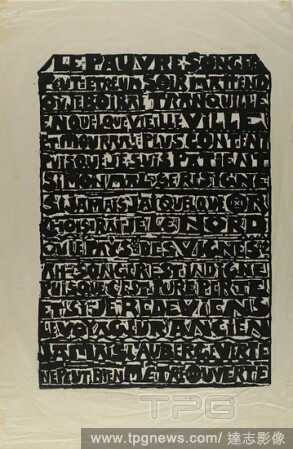 LE PAUVRE SONGE
PEUT-ETRE UN SOIR M'ATTEND
OU JE BOIRAI TRANQUILLE
EN QUELQUE VIEILLE VILLE
ET MOURRAI PLUS CONTENT
PUISQUE JE SUIS PATIENT
SI MON MAL SE RESIGNE
SI JAMAIS J'AI QUELQUE OR
CHOISIRAI JE LE NORD
OU LE PAYS DES VIGNES
AH SONGER EST INDIGNE
PUISQUE C'EST PURE PERTE
ET SI JE REDEVIENS
LE VOYAGEUR ANCIEN
JAMAIS L'AUBERGE VERTE
NE PEUT BIEN M'ETRE OUVERTE
TPG
www.tpgnews.com / 達志影像